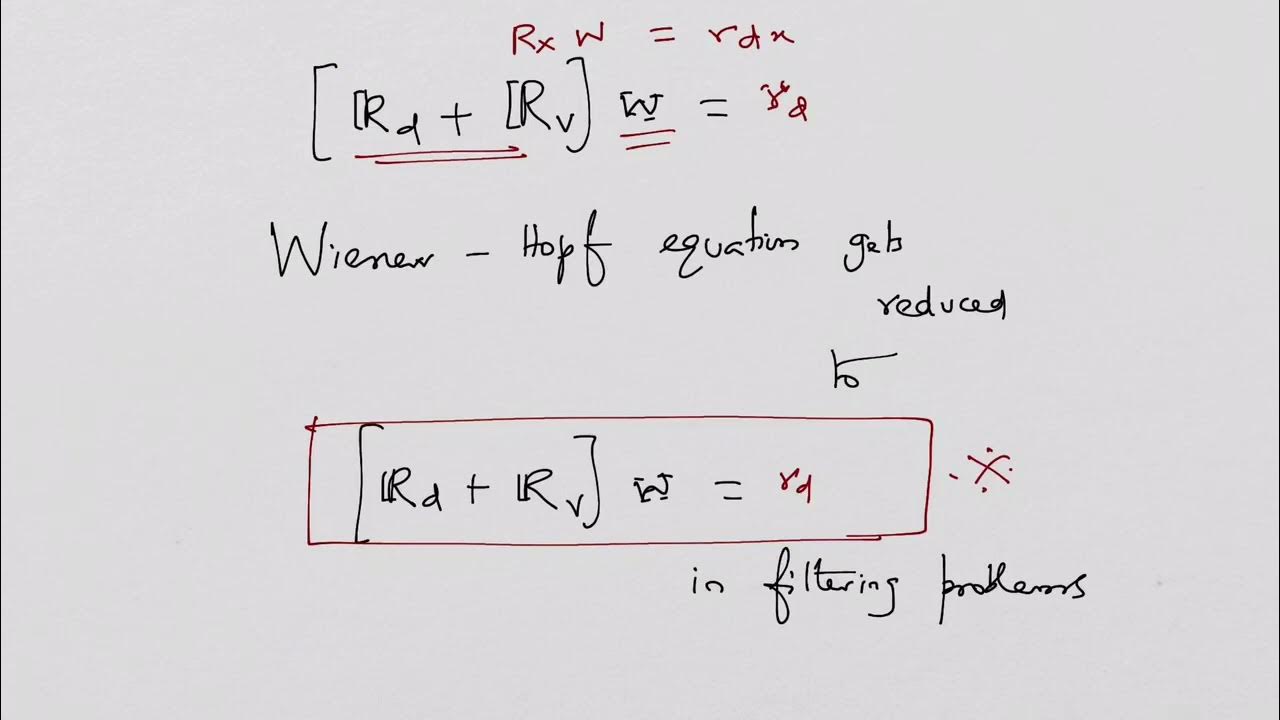 Rx W = rdx
[ℝd + ℝv] W = rd
Wiener - Hopf equation gets
reduced
to
[ℝd + ℝv] W = rd
in filtering problems